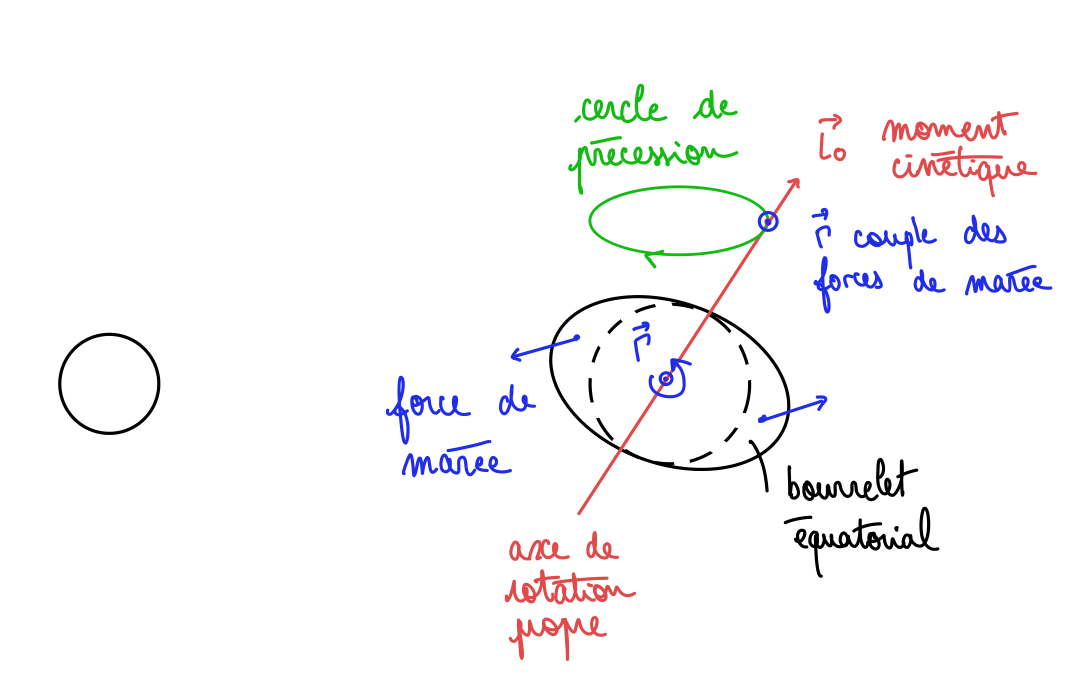 cercle de
précession
L⃗₀ moment
cinétique
Γ⃗ couple des
forces de marée
Γ⃗
force de
marée
bourrelet
équatorial
axe de
rotation
propre